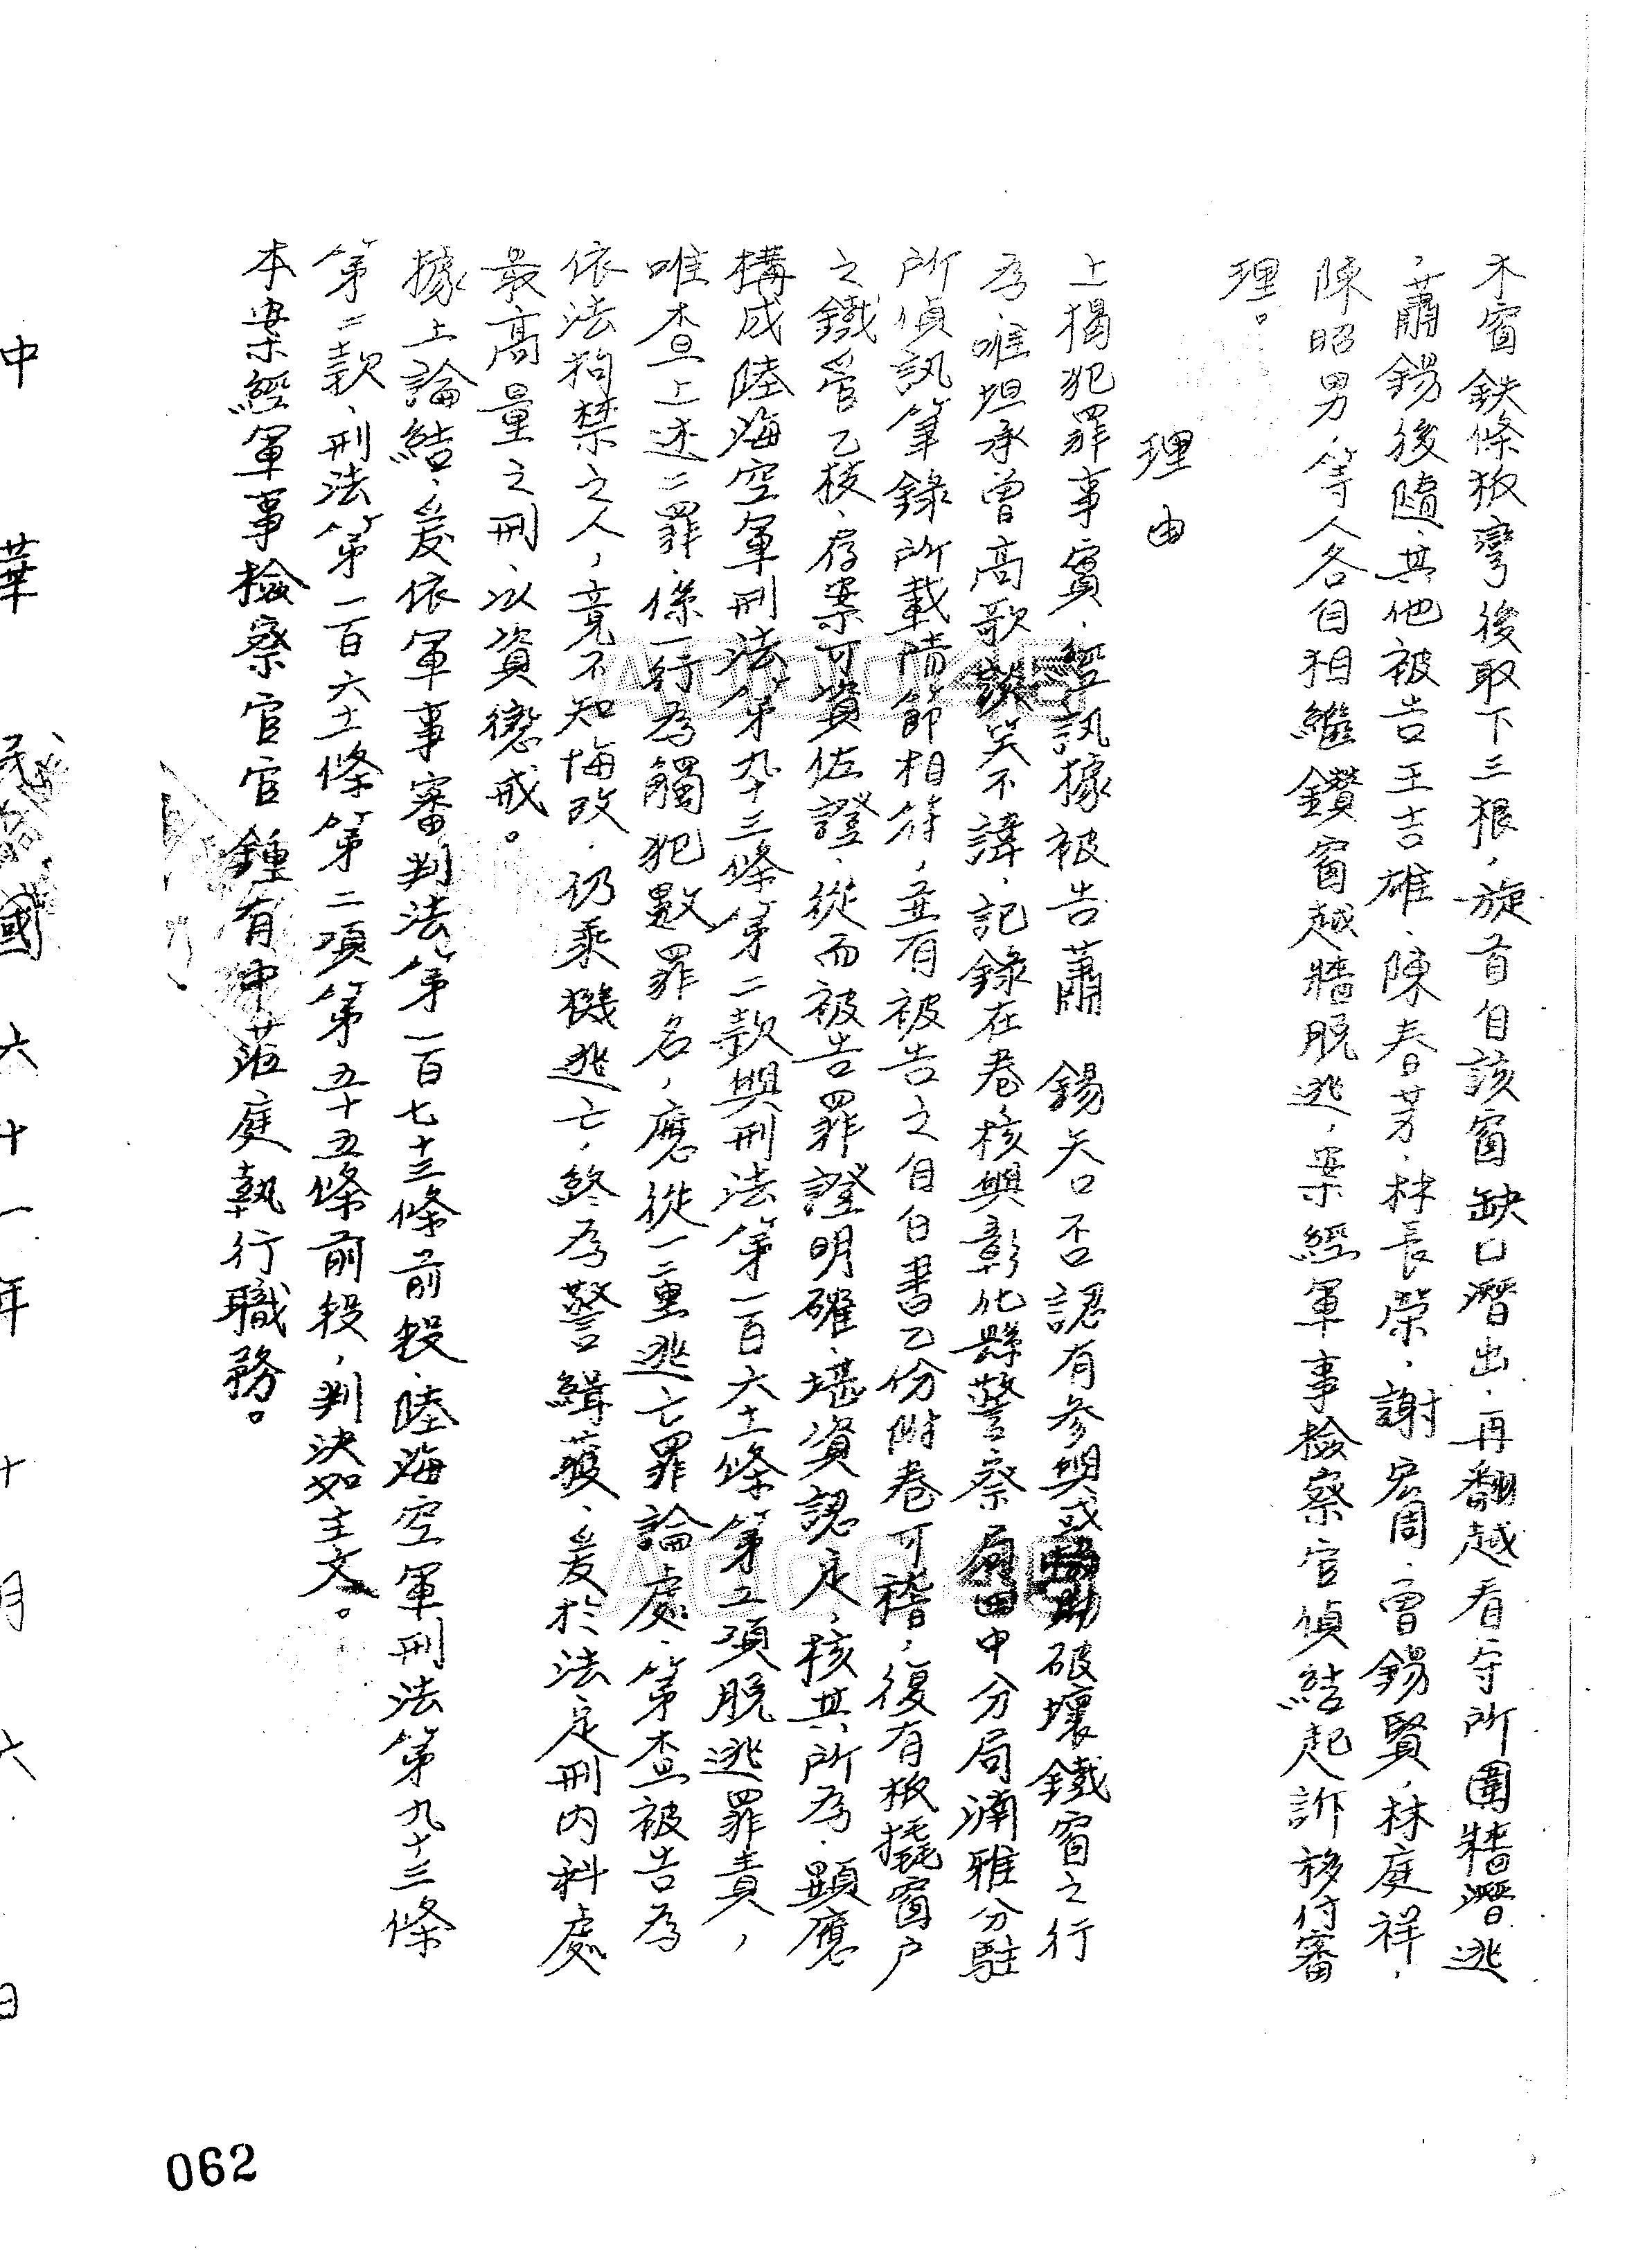 木窗鉄條扳彎後取下三根，旋首自該窗缺口潛出，再翻越看守所圍牆潛逃
，蕭錫後隨，其他被告王吉雄、陳春芳、林長榮、謝宏周、曾錫賢、林庭祥、
陳昭男、等人各自相繼鑽窗越牆脫逃，案經軍事檢察官偵結起訴移付審
理。
理由
上揭犯罪事實，經訊據被告蕭 錫矢口否認有參與或協助破壞鐵窗之行
為，唯坦承曾高歌談笑不諱，記錄在卷核與彰化縣警察局田中分局湳雅分駐
所偵訊筆錄所載情節相符，並有被告之自白書乙份附卷可稽，復有扳撬窗戶
之鐵管乙枝，存案可資佐證，從而被告罪證明確，堪資認定，核其所為，顯應
構成陸海空軍刑法第九十三條第二款與刑法第一百六十一條第二項脫逃罪責，
唯查上述二罪，係一行為觸犯數罪名，應從一重逃亡罪論處，第查被告為
依法拘禁之人，竟不知悔改，仍乘機逃亡，終為警緝獲，爰於法定刑內科處
最高量之刑，以資懲戒。
據上論結，爰依軍事審判法第一百七十三條前段，陸海空軍刑法第九十三條
第二款，刑法第一百六十一條第二項第五十五條前段，判決如主文。
本案經軍事檢察官官鍾有中蒞庭執行職務。
中華民國六十一年十月六日
062